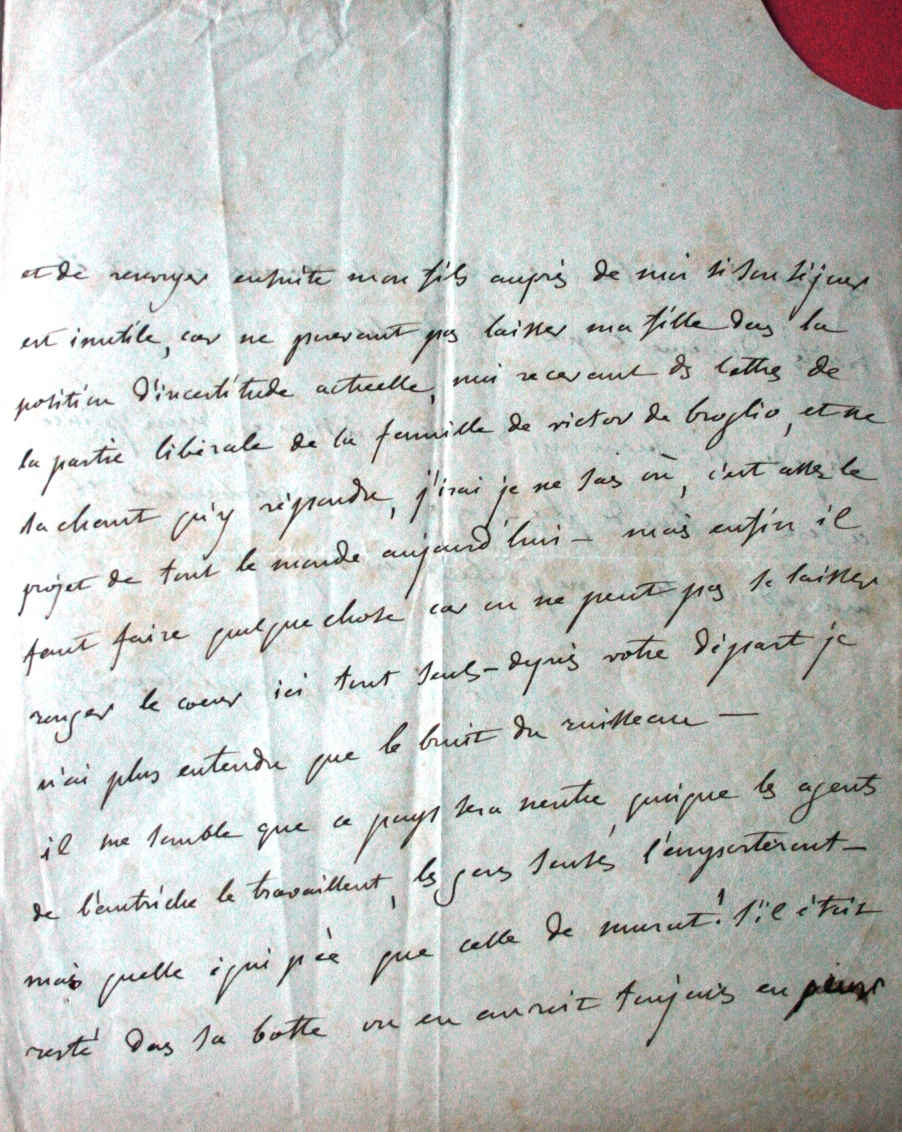 et de renvoyer ensuite mon fils auprès de moi si son séjour
est inutile, car ne pouvant pas laisser ma fille dans la
position d'incertitude actuelle, moi recevant ds lettres de
la partie libérale de la famille de victor de broglio, et ne
sachant qu'y répondre, j'irai je ne sais où, c'est assez le
projet de tout le monde aujourd'hui – mais enfin il
faut faire quelque chose car on ne peut pas se laisser
ronger le coeur ici tout seuls – depuis votre départ je
n'ai plus entendu que le bruit du ruisseau —
il me semble que ce pays sera neutre quoique les agents
de l'autriche le travaillent, les gens sensés l'emporteront –
mais quelle équipée que celle de murat! s'il étoit
resté dans sa botte on en auroit toujours eu peur